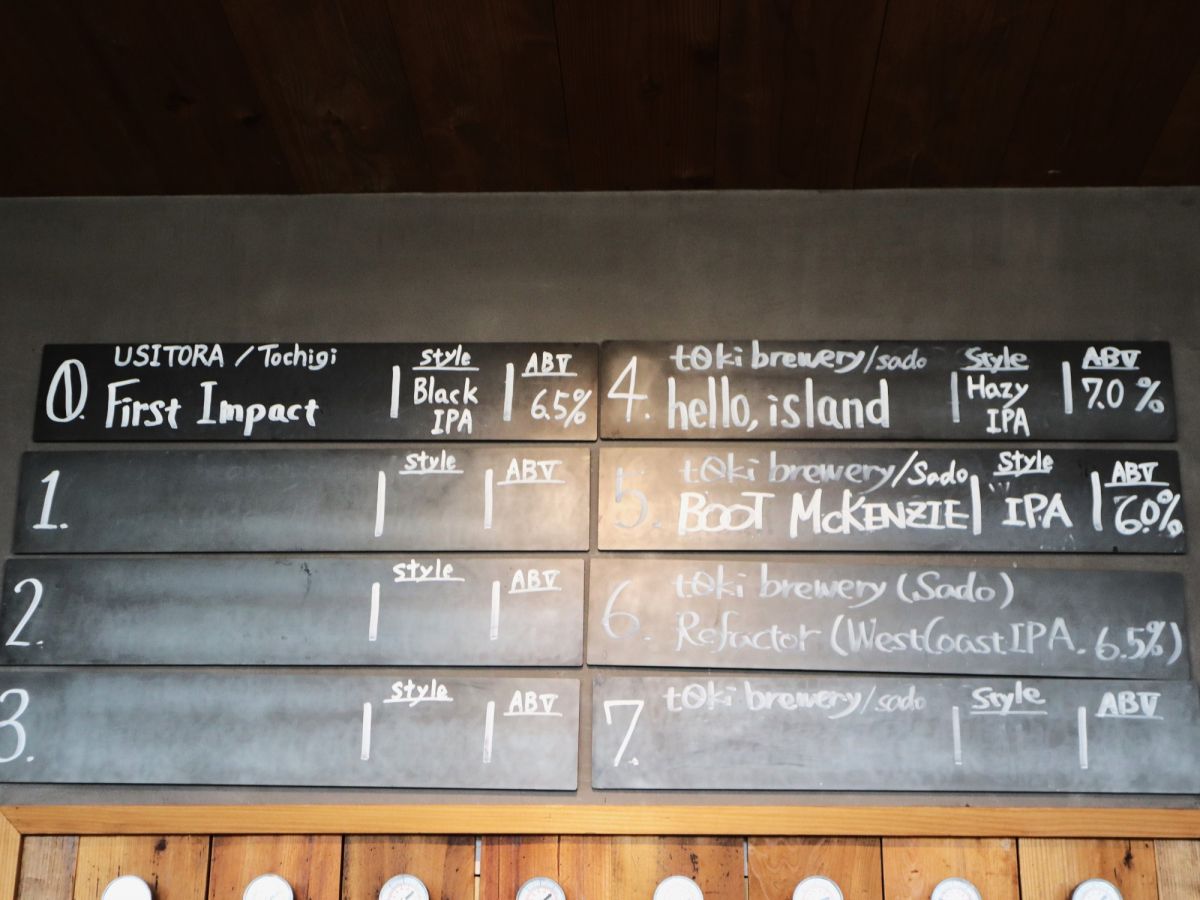 0. USITORA / Tochigi
First Impact
Style
Black
IPA
ABV
6.5%
1.
Style
ABV
2.
Style
ABV
3.
Style
ABV
4. tOki brewery/sado
hello, island
Style
Hazy
IPA
ABV
7.0 %
5. tOki brewery/Sado
BOOT McKENZIE
Style
IPA
ABV
6.0%
6. tOki brewery (Sado)
Refactor (West Coast IPA. 6.5%)
7. tOki brewery/sado
Style
ABV